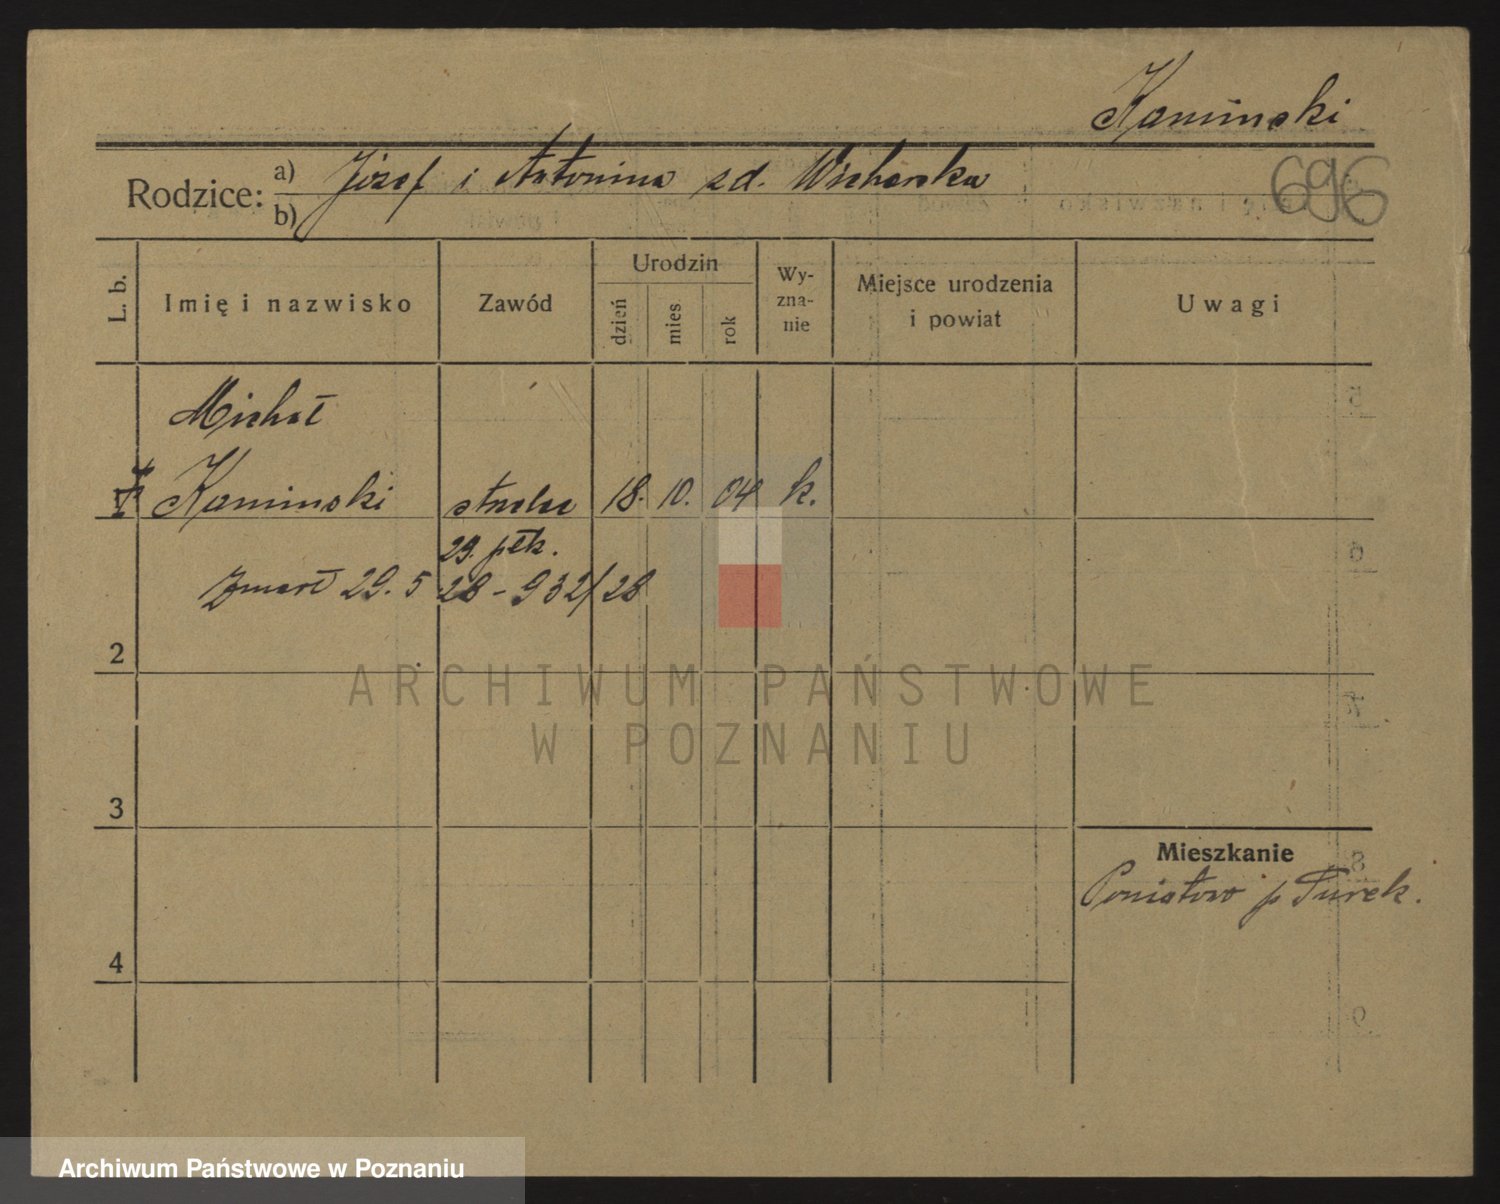 Kaminski
Rodzice: a) Józef i Antonina zd. Wicherska
b)
696
L. b.
Imię i nazwisko
Zawód
Urodzin
dzień
mies
rok
Wy-
zna-
nie
Miejsce urodzenia
i powiat
Uwagi
Michał
1 Kaminski strzelec 18. 10. 04 k.
29. płk.
Zmarł 29. 5 28 - 932/28
2
3
4
Mieszkanie
Poniatowo p Turek.
ARCHIWUM PAŃSTWOWE
W POZNANIU
Archiwum Państwowe w Poznaniu